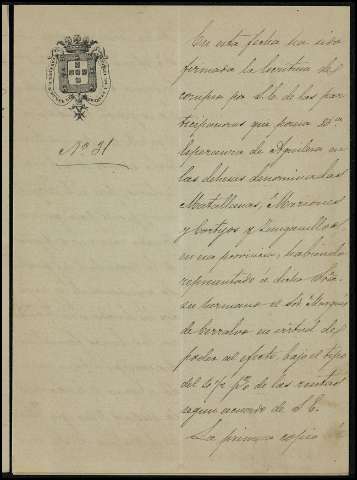 Nº 31
En esta fecha ha sido
firmada la escritura de
compra por S.E. de las par-
ticipaciones que poseia Dª
Esperanza de Aguilera en
las dehesas denominadas
Matallanas, Mariones
y Cortijos y Zanganillos,
en esa provincia, habiendo
representado á dicha Sra
su hermano el Sôr Marqués
de Cerralbo en virtud de
poder al efecto, bajo el tipo
del 6½ p% de las rentas
segun acuerdo de S.E.
La primera copia